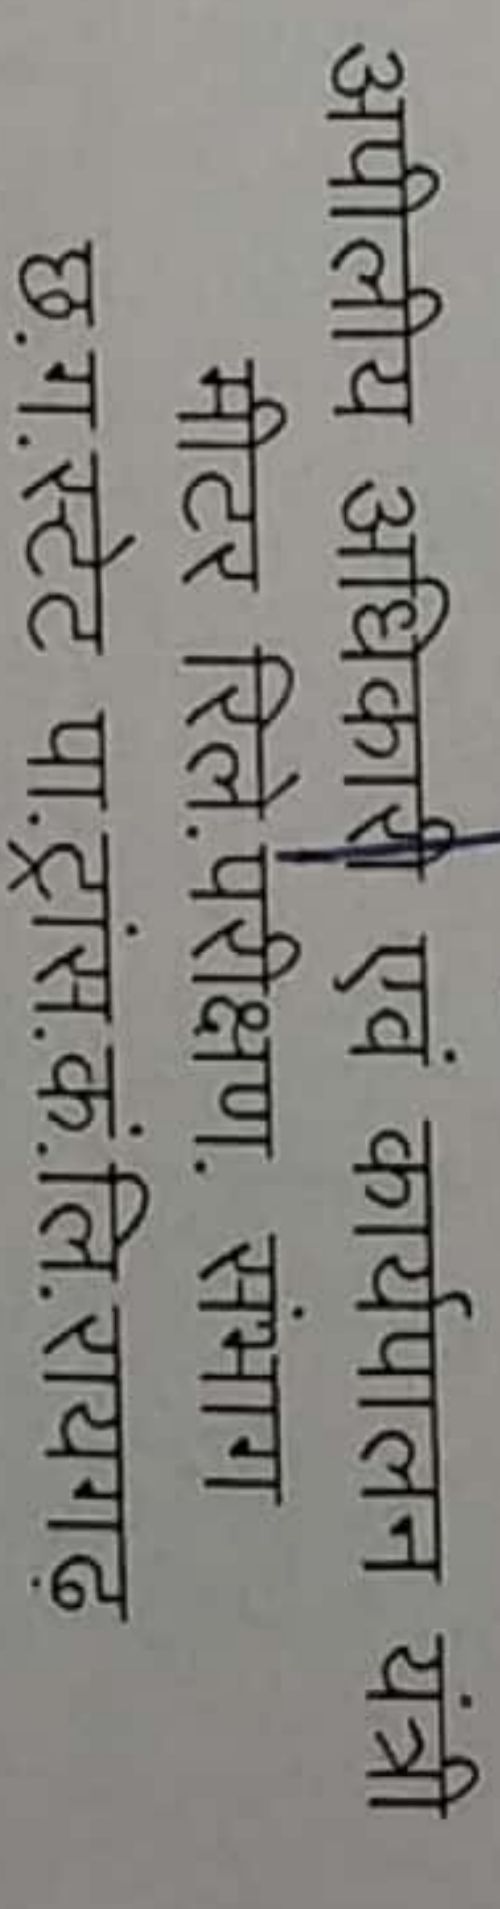 अपीलीय अधिकारी एवं कार्यपालन यंत्री
मीटर रिले.परीक्षण. संभाग
छ.ग.स्टेट पा.ट्रांस.कं.लि.रायगढ़